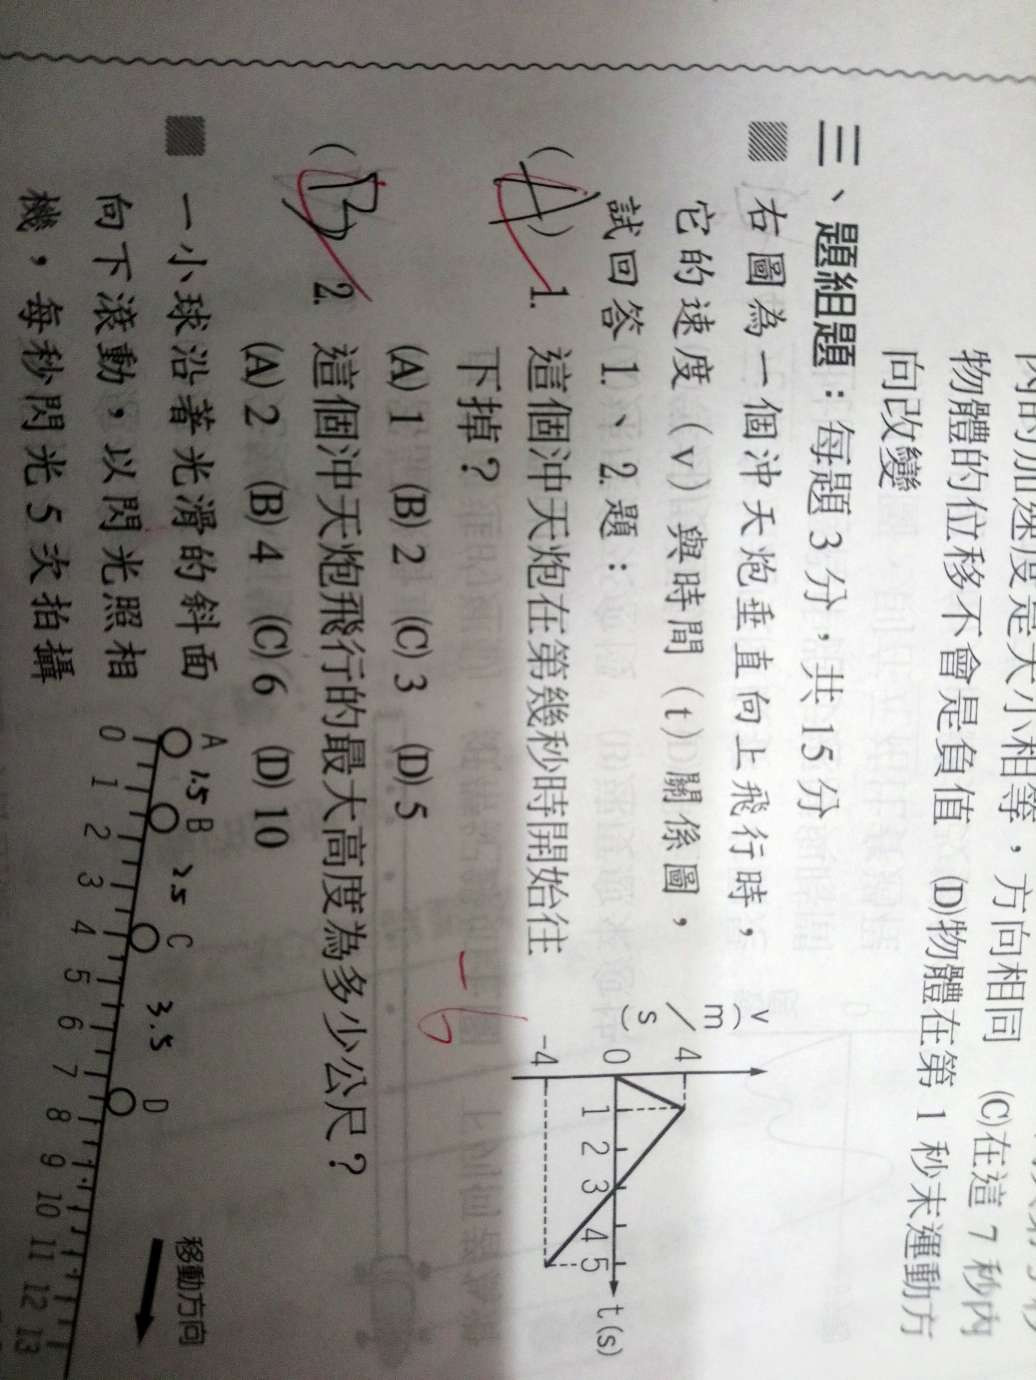 物體的位移不會是負值 (D)物體在第 1 秒末運動方
向改變
三、題組題：每題 3 分，共 15 分
右圖為一個沖天炮垂直向上飛行時，
它的速度(v)與時間(t)關係圖，
試回答 1.、2. 題：
v(m/s)
4
0
-4
1 2 3 4 5 t(s)
(A) 1. 這個沖天炮在第幾秒時開始往
下掉？
(A) 1 (B) 2 (C) 3 (D) 5
-6
(B) 2. 這個沖天炮飛行的最大高度為多少公尺？
(A) 2 (B) 4 (C) 6 (D) 10
一小球沿著光滑的斜面
向下滾動，以閃光照相
機，每秒閃光 5 次拍攝
A 1.5 B 2.5 C 3.5 D
移動方向
0 1 2 3 4 5 6 7 8 9 10 11 12 13